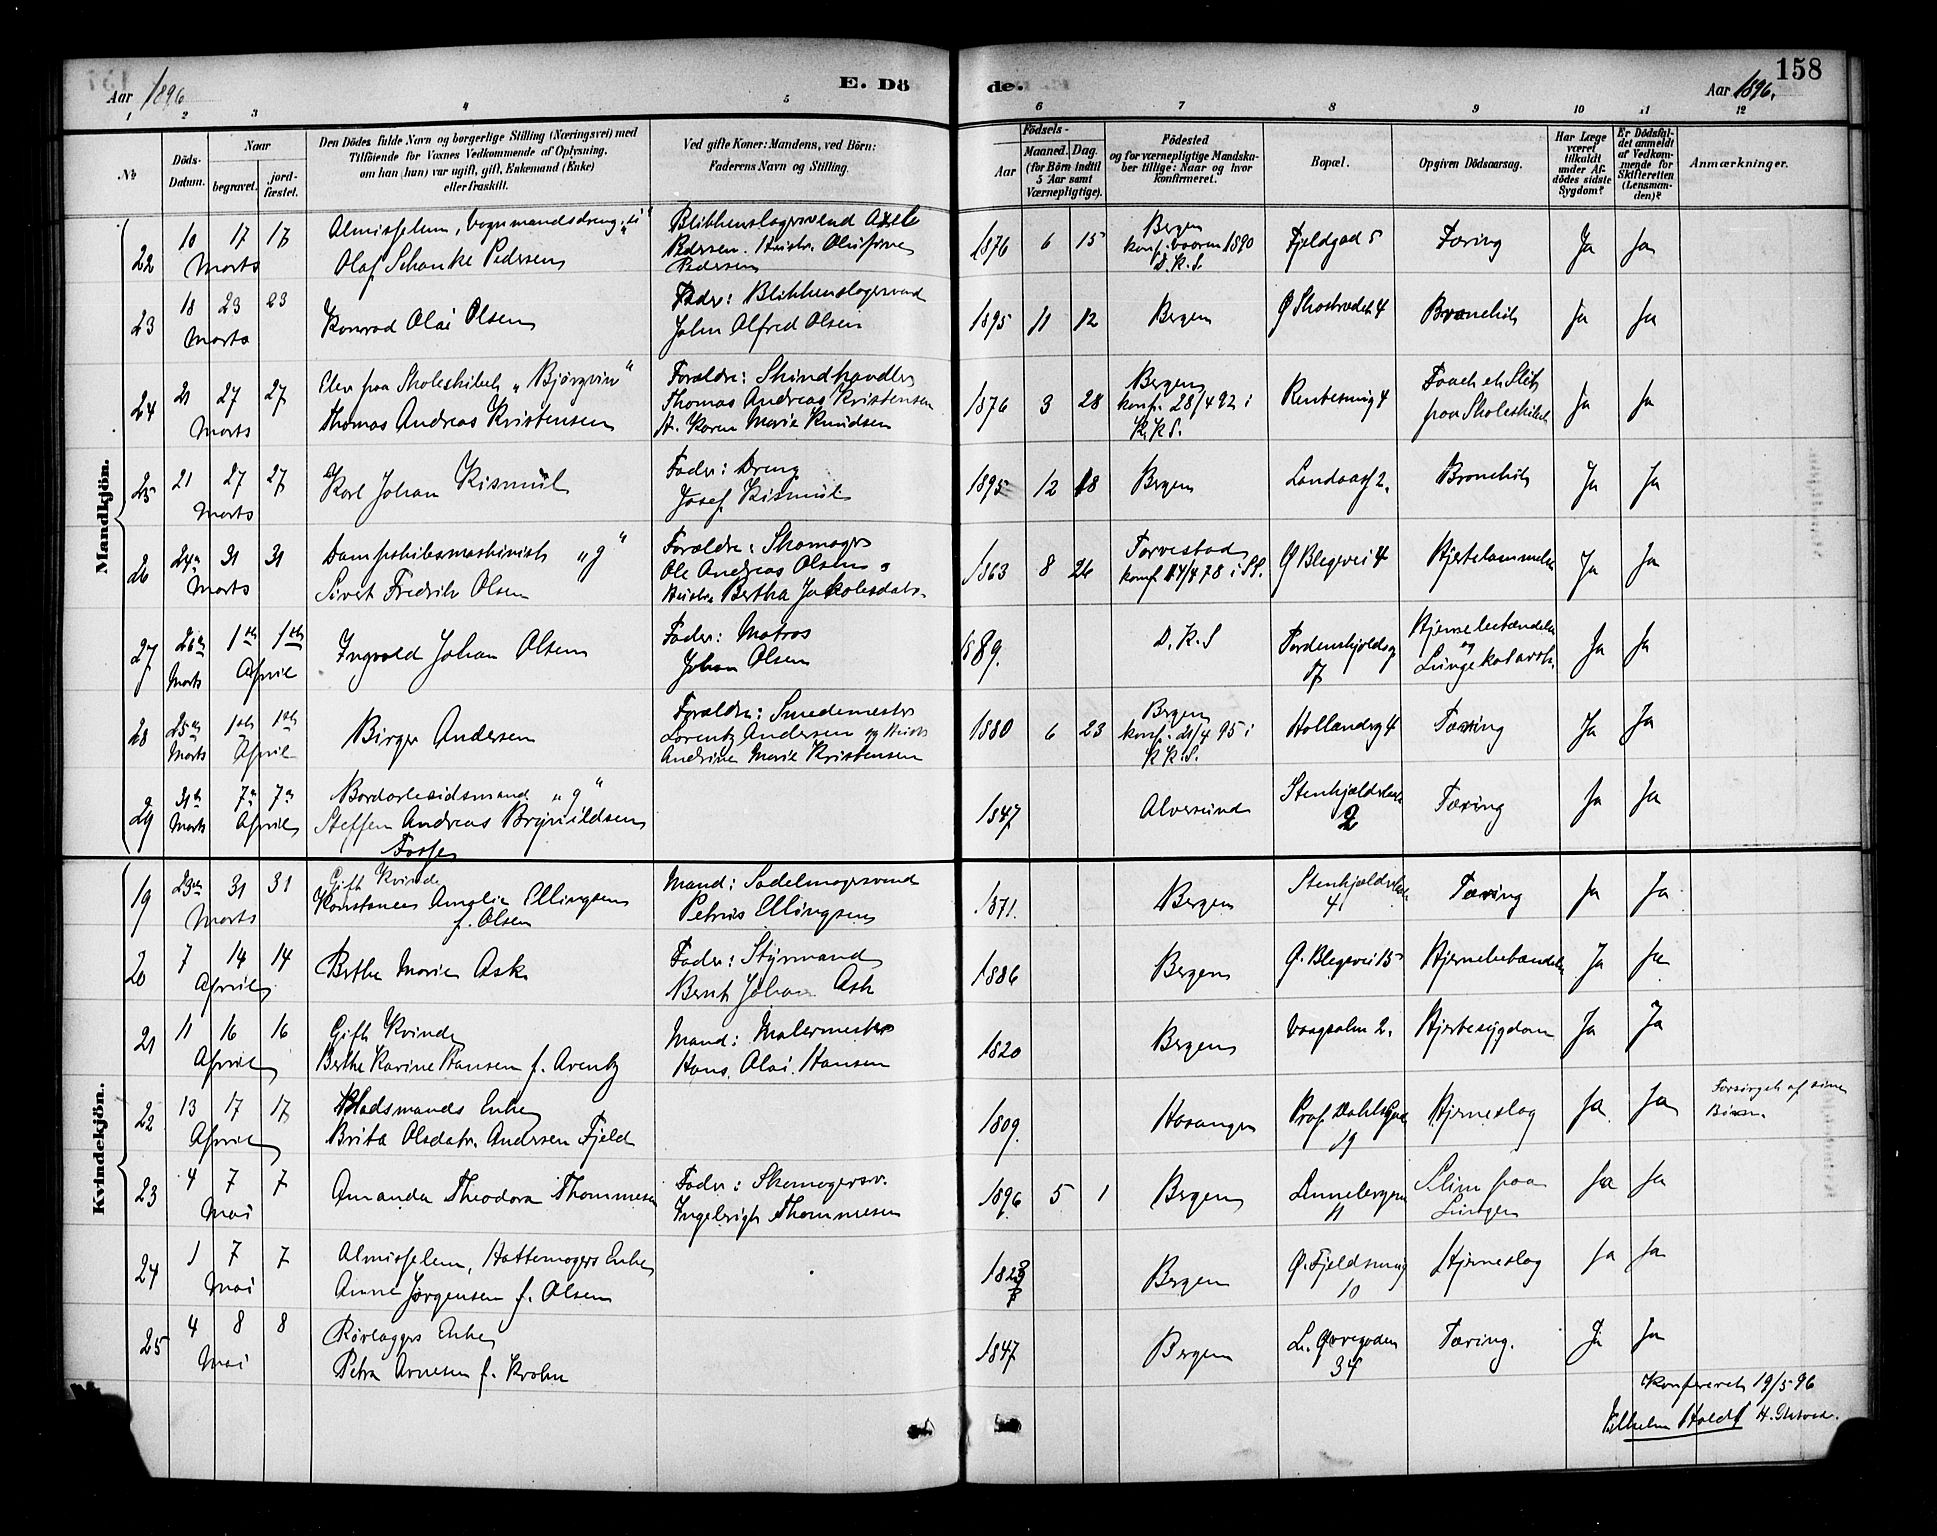 158
Aar 1896
E. Dö
de.
Aar 1896.
1 2 3 4 5 6 7 8 9 10 11 12
No
Döds-
Datum.
Naar
begravet.
jord-
fæstet.
Den Dödes fulde Navn og borgerlige Stilling (Næringsvei) med
Tilföiende for Voxnes Vedkommende af Oplysning,
om han (hun) var ugift, gift, Enkemand (Enke)
eller fraskilt.
Ved gifte Koner: Mandens, ved Börn:
Faderens Navn og Stilling.
Födsels-
Aar
Maaned.
Dag.
(for Börn indtil
5 Aar samt
Værnepligtige).
Födested
og for værnepligtige Mandska-
ber tillige: Naar og hvor
konfirmeret.
Bopæl.
Opgiven Dödsaarsag.
Har Læge
været
tilkaldt
under Af-
dödes sidste
Sygdom?
Er Dödsfal-
det anmeldt
af Vedkom-
mende for
Skifteretten
(Lensman-
den)?
Anmærkninger.
Mandkjön.
22 10 17 17 Marts
Almisselem, Vognmandsdreng, "u"
Olaf Schanke Pedersen
Blikkenslagersvend Axel
Pedersen. Hustru Olufine
Pedersen
1876 6 15
Bergen
konf. vaaren 1890
D.K.S.
Fjeldgad 5
Tæring
Ja Ja
23 18 23 23 Marts
Konrad Olai Olsen
Fader: Blikkenslagersvend
John Alfred Olsen
1895 11 12
Bergen
Ø Skostrædet 4
Bronchit
Ja Ja
24 21 27 27 Marts
Elev paa Skoleskibet "Bjørgvin"
Thomas Andreas Kristensen
Forældre: Skindhandler
Thomas Andreas Kristensen
H. Karen Marie Knudsen
1876 3 28
Bergen
konf. 28/4 92 i
K.K.S.
Rentesmug 4
Faaet et Slag
paa Skoleskibet
Ja Ja
25 21 27 27 Marts
Karl Johan Kismül
Fader: Dreng
Josef Kismül
1895 12 18
Bergen
Landaasf 2.
Bronchit
Ja Ja
26 24de 31 31 Marts
Dampskibsmaskinist "g"
Sivert Fredrik Olsen
Forældre: Skomager
Ole Andreas Olsen &
Hustru Bertha Jakobsdatr.
1863 8 26
Torvestad
konf. 14/4 78 i
Ø Blegevei 4
Hjertelammelse
Ja Ja
27 26de Marts 1ste 1ste April
Ingvald Johan Olsen
Fader: Matros
Johan Olsen
1889.
D.K.S
Tordenskjoldsg
7
Hjernebetændelse
og
Lungekatarrh.
Ja Ja
28 25de Marts 1ste 1ste April
Birger Andersen
Forældre: Smedemester
Lorentz Andersen og Hust
Andrine Marie Kristensen
1880 6 23
Bergen
konf. 21/4 95 i
K.K.S.
Hollenderg 4
Tæring
Ja Ja
29 31te Marts 7de 7de April
Bordarbeidsmand "g"
Steffen Andreas Brynildsen
Fosse
1847
Alversund
Stenkjælderb
2
Tæring
Ja Ja
Kvindekjön.
19 29de 31 31 Marts
Gift Kvinde
Konstance Amalie Ellingsen
f. Olsen
Mand: Sadelmagersvend
Petrus Ellingsen
1871.
Bergen
Stenkjælderb
4
Tæring
Ja Ja
20 7 14 14 April
Berthe Marie Ask
Fader: Styrmand
Bernt Johan Ask
1886
Bergen
Ø. Blegevei 15
Hjernebetændelse
Ja Ja
21 11 16 16 April
Gift Kvinde
Berthe Karine Hansen f. Arentz
Mand: Malermester
Hans Olai Hansen
1820
Bergen
Vaagsalm 2.
Hjertesygdom
Ja Ja
22 13 17 17 April
Enke
Brita Olsdatr. Andersen Fjeld
1809.
Hosanger
Prof. Dahls Gade
19
Hjerneslag
Ja Ja
Forsørget af sine
Børn.
23 4 7 7 Mai
Amanda Theodora Thommesen
Fader: Skomagersv.
Ingebrigt Thommesen
1896 5 1
Bergen
11
Slim paa
Lungen
Ja Ja
24 1 7 7 Mai
Almisselem, Hattemagers Enke
Anne Jørgensen f. Olsen
1823
Bergen
Ø. Fjeldsmug
10
Hjerneslag
Ja Ja
25 4 8 8 Mai
Rørlæggers Enke
Petra Arnesen f. Krohn
1847
Bergen
L. Øvregaden
34
Tæring.
Ja Ja
Konfereret 19/5 96
Vilhelm Holdt